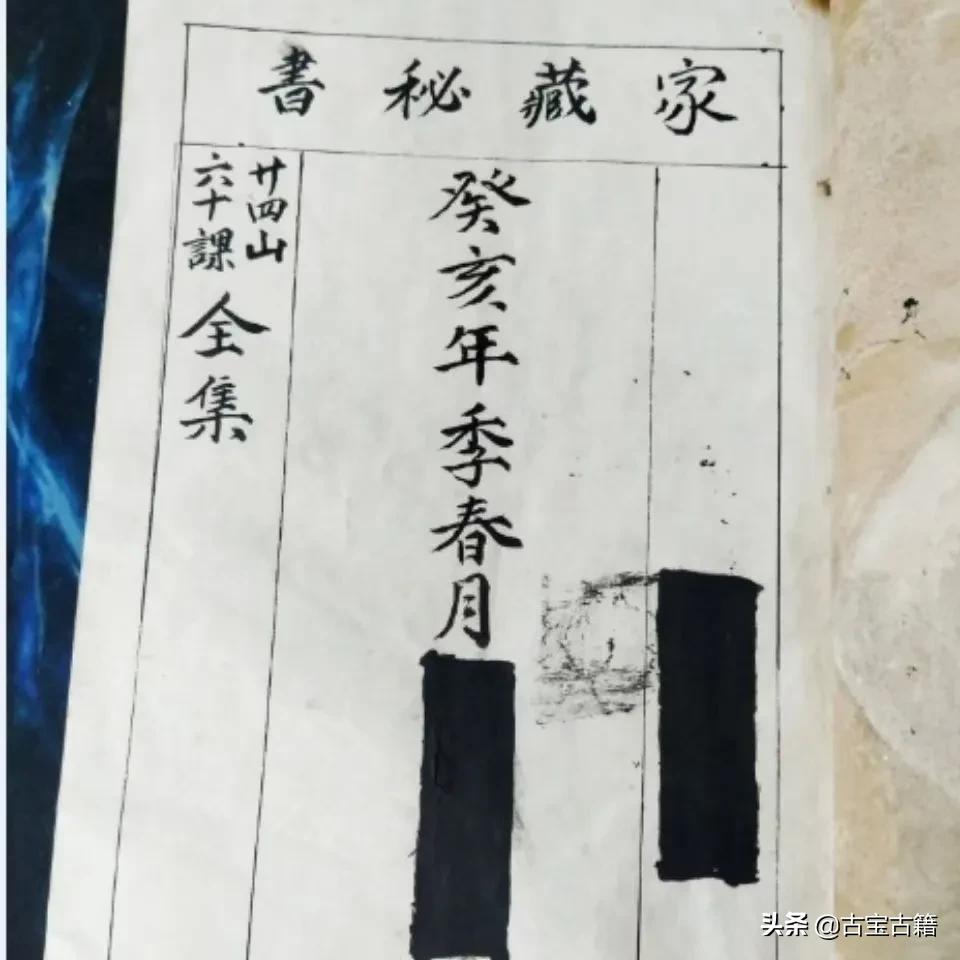 家藏秘書
癸亥年季春月
廿四山
六十課
全集
头条 @古宝古籍